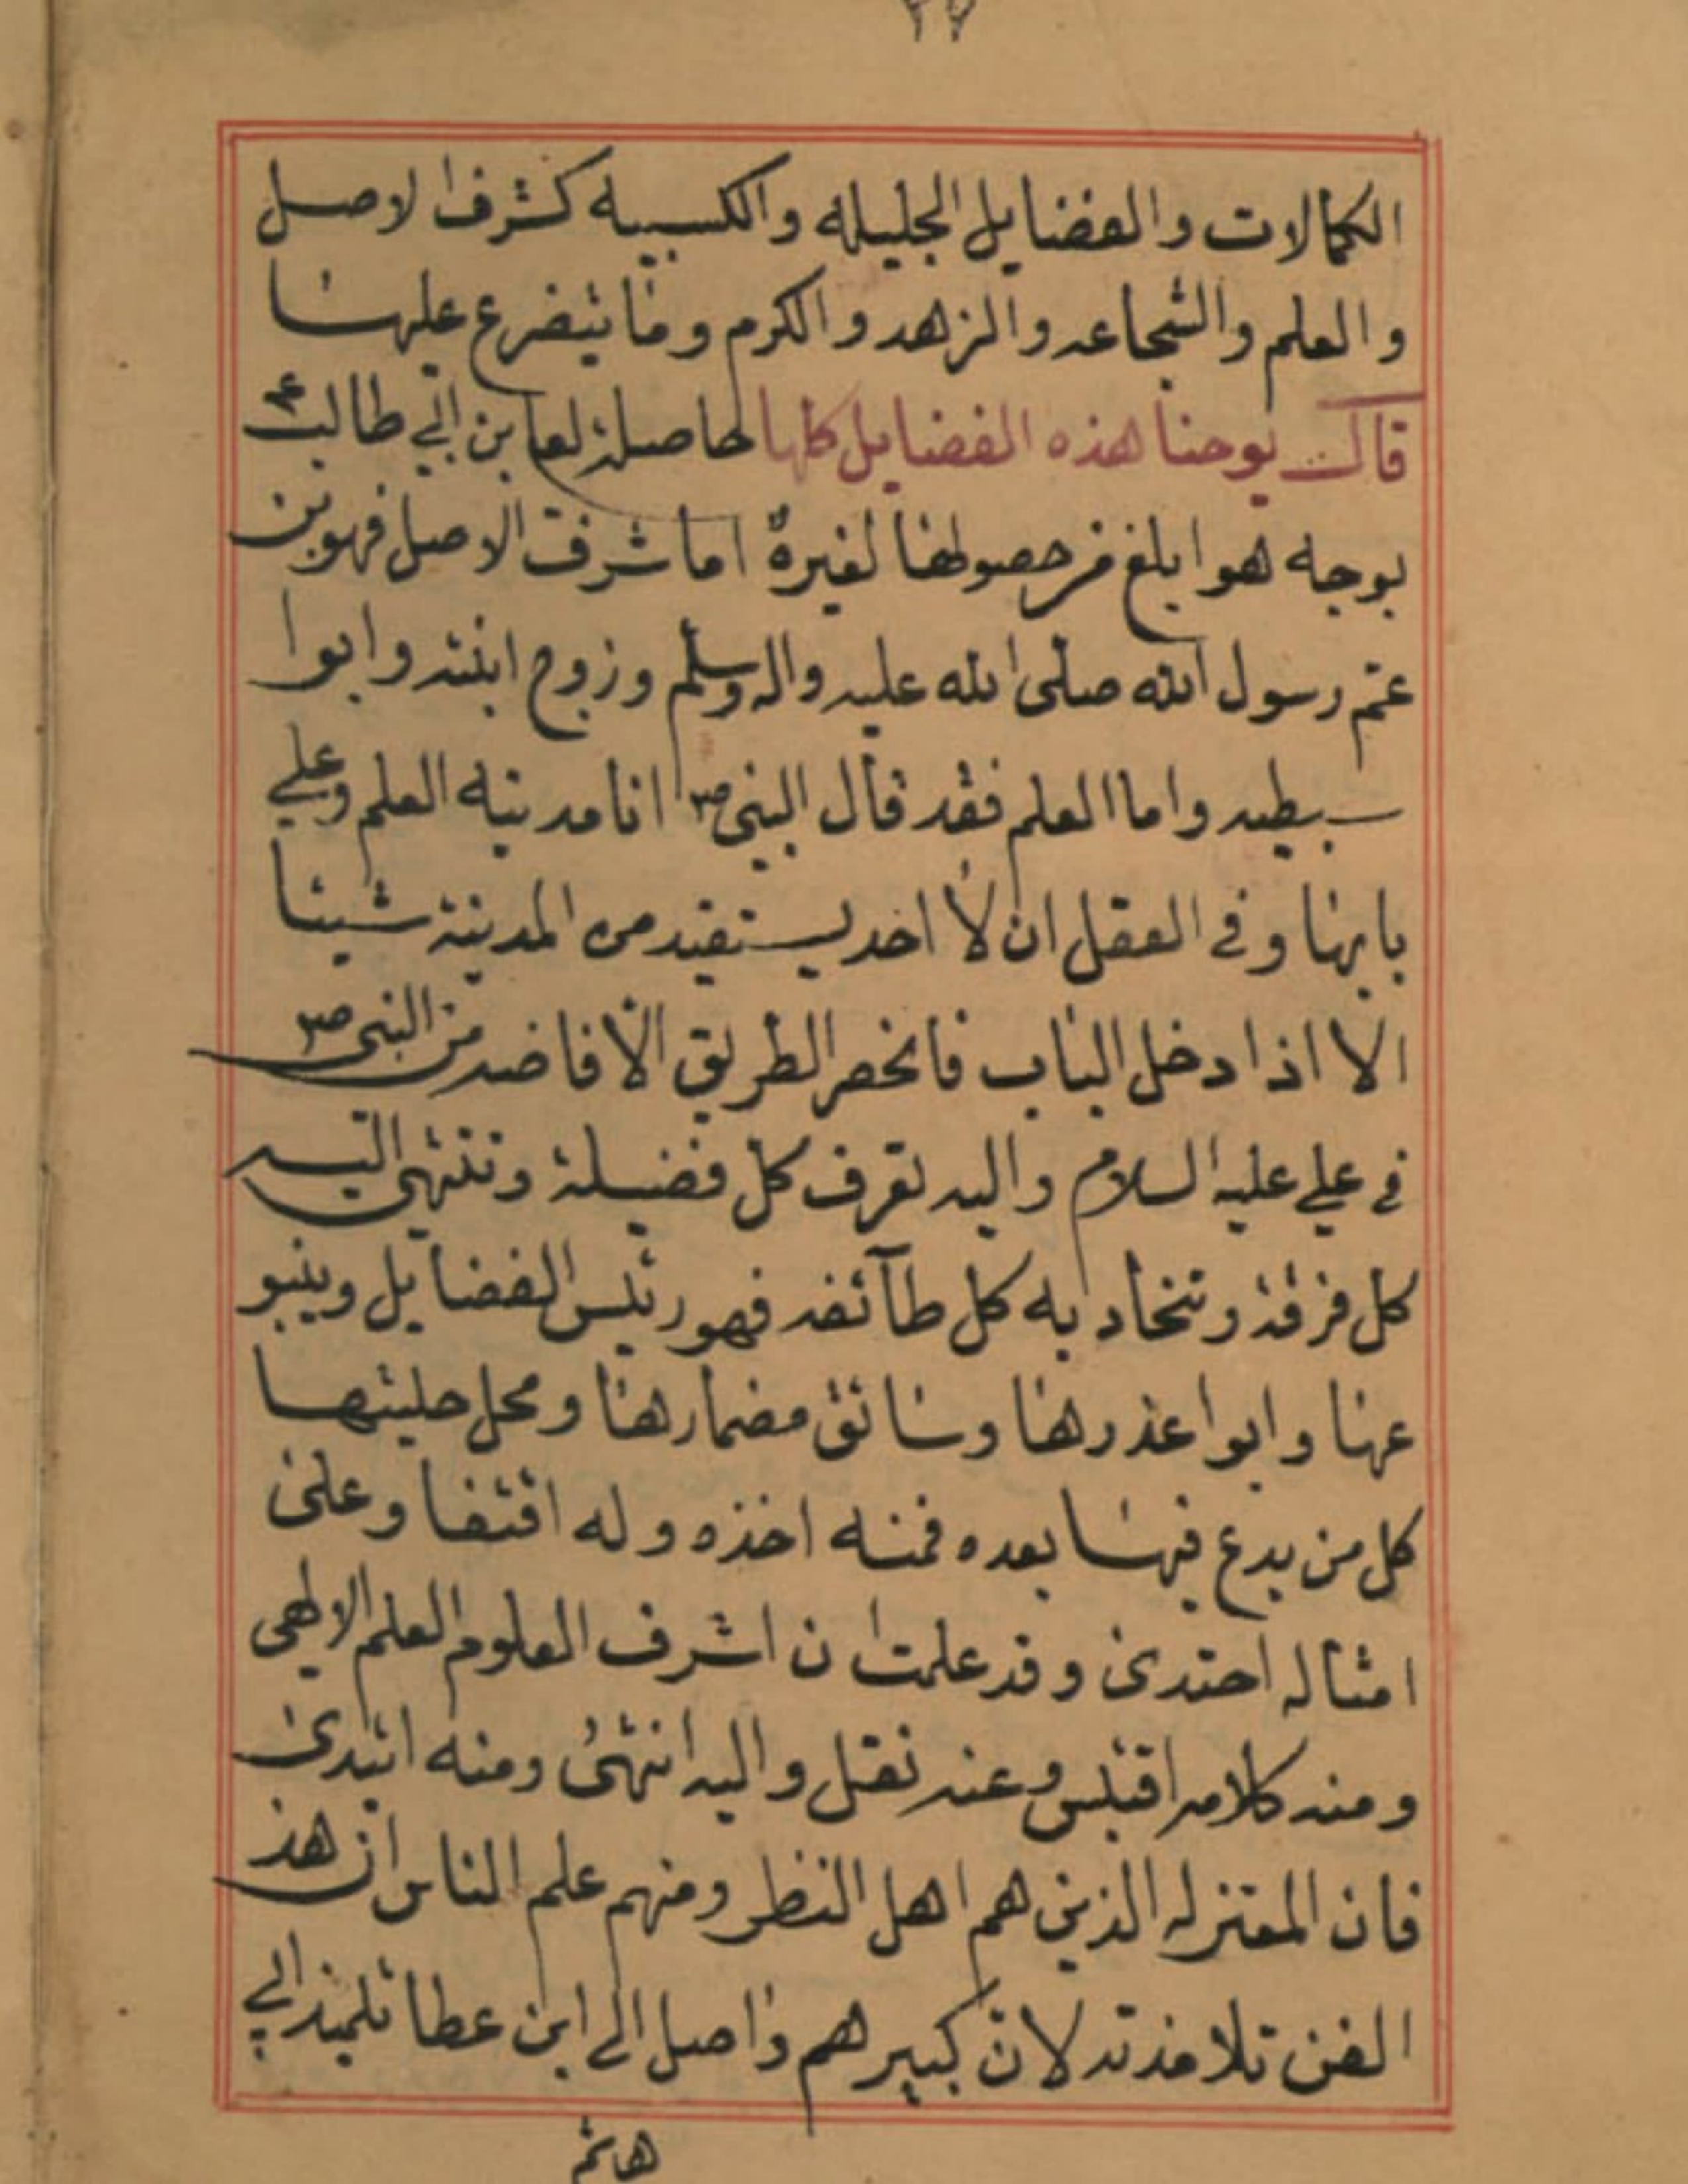 ٢٧
الكمالات والفضايل الجليله والكسبيه كشرف الاصل
والعلم والشجاعه والزهد والكرم وما يتضرع عليها
قال يوحنا هذه الفضايل كلها حاصلة لعلي بن ابي طالب ع
بوجه هو ابلغ من حصولها لغيره اما شرف الاصل فهو بن
عم رسول الله صلى الله عليه واله وسلم وزوج ابنته وابوا
سبطيه واما العلم فقد قال النبي ص انا مدينه العلم وعلي
بابها وفي العقل ان لا احد يستفيد من المدينة شيئا
الا اذا دخل الباب فانحصر الطريق الافاضه من النبي ص
في علي عليه السلام واليه تعرف كل فضيلة وتنتهي اليه
كل فرقة وتتجاد به كل طآئفه فهو رئيس الفضايل وينبو
عها وابوا عذرها وسائق مضمارها ومحل حليتها
كل من بدع فيها بعده فمنه اخذه وله اقتفا وعلى
امثاله احتدى وقد علمت ان اشرف العلوم العلم الالهي
ومنه كلامه اقتبس وعنه نقل واليه انتهى ومنه ابتدئ
فان المعتزله الذين هم اهل النظر ومنهم علم الناس ان هذ
الفن تلامذته لان كبيرهم واصل الى ابن عطا تلميذ ابي
هاشم